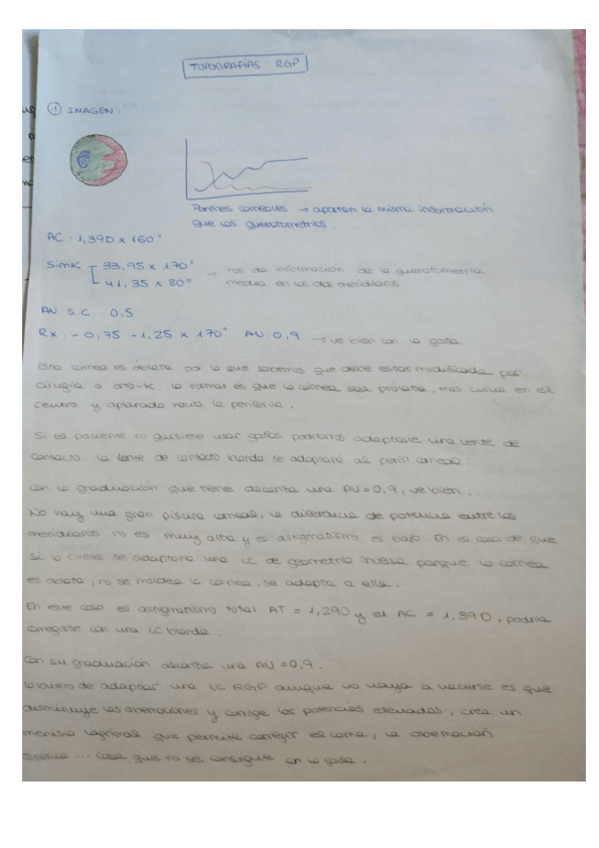 TOPOGRAFÍAS RGP
① IMAGEN:
Perfiles corneales → aportan la misma información
que los queratometrías.
AC: 1,39D x 160°
SimK 33,95 x 170° → nos da información de la queratometría
41,35 x 80° media en los dos meridianos
AV S.C. 0,5
Rx: -0,75 -1,25 x 170° AV: 0,9 → ve bien con la gafa
Esta córnea es oblata por lo que sabemos que debe estar modificada por
cirugía o orto-K. Lo normal es que la córnea sea prolata, más curva en el
centro y aplanada hacia la periferia.
Si el paciente no quisiese usar gafas podríamos adaptarle una lente de
contacto. La lente de contacto blanda se adaptará al perfil corneal.
Con la graduación que tiene alcanza una AV=0,9, ve bien.
No hay una gran piscina lagrimal, la diferencia de potencia entre los
meridianos no es muy alta y el astigmatismo es bajo. En el caso de que
si lo fuese se adaptaría una LC de geometría inversa porque la córnea
es oblata, no se moldea la córnea, se adapta a ella.
En este caso el astigmatismo total AT = 1,29D y el AC = 1,39D, podría
corregirse con una LC blanda.
Con su graduación alcanza una AV=0,9.
Lo bueno de adaptar una LC RGP aunque no vaya a hacerse es que
disminuye las aberraciones y corrige las potencias elevadas, crea un
menisco lagrimal que permite corregir el coma, la aberración
esférica ... cosa que no se consigue con la gafa.